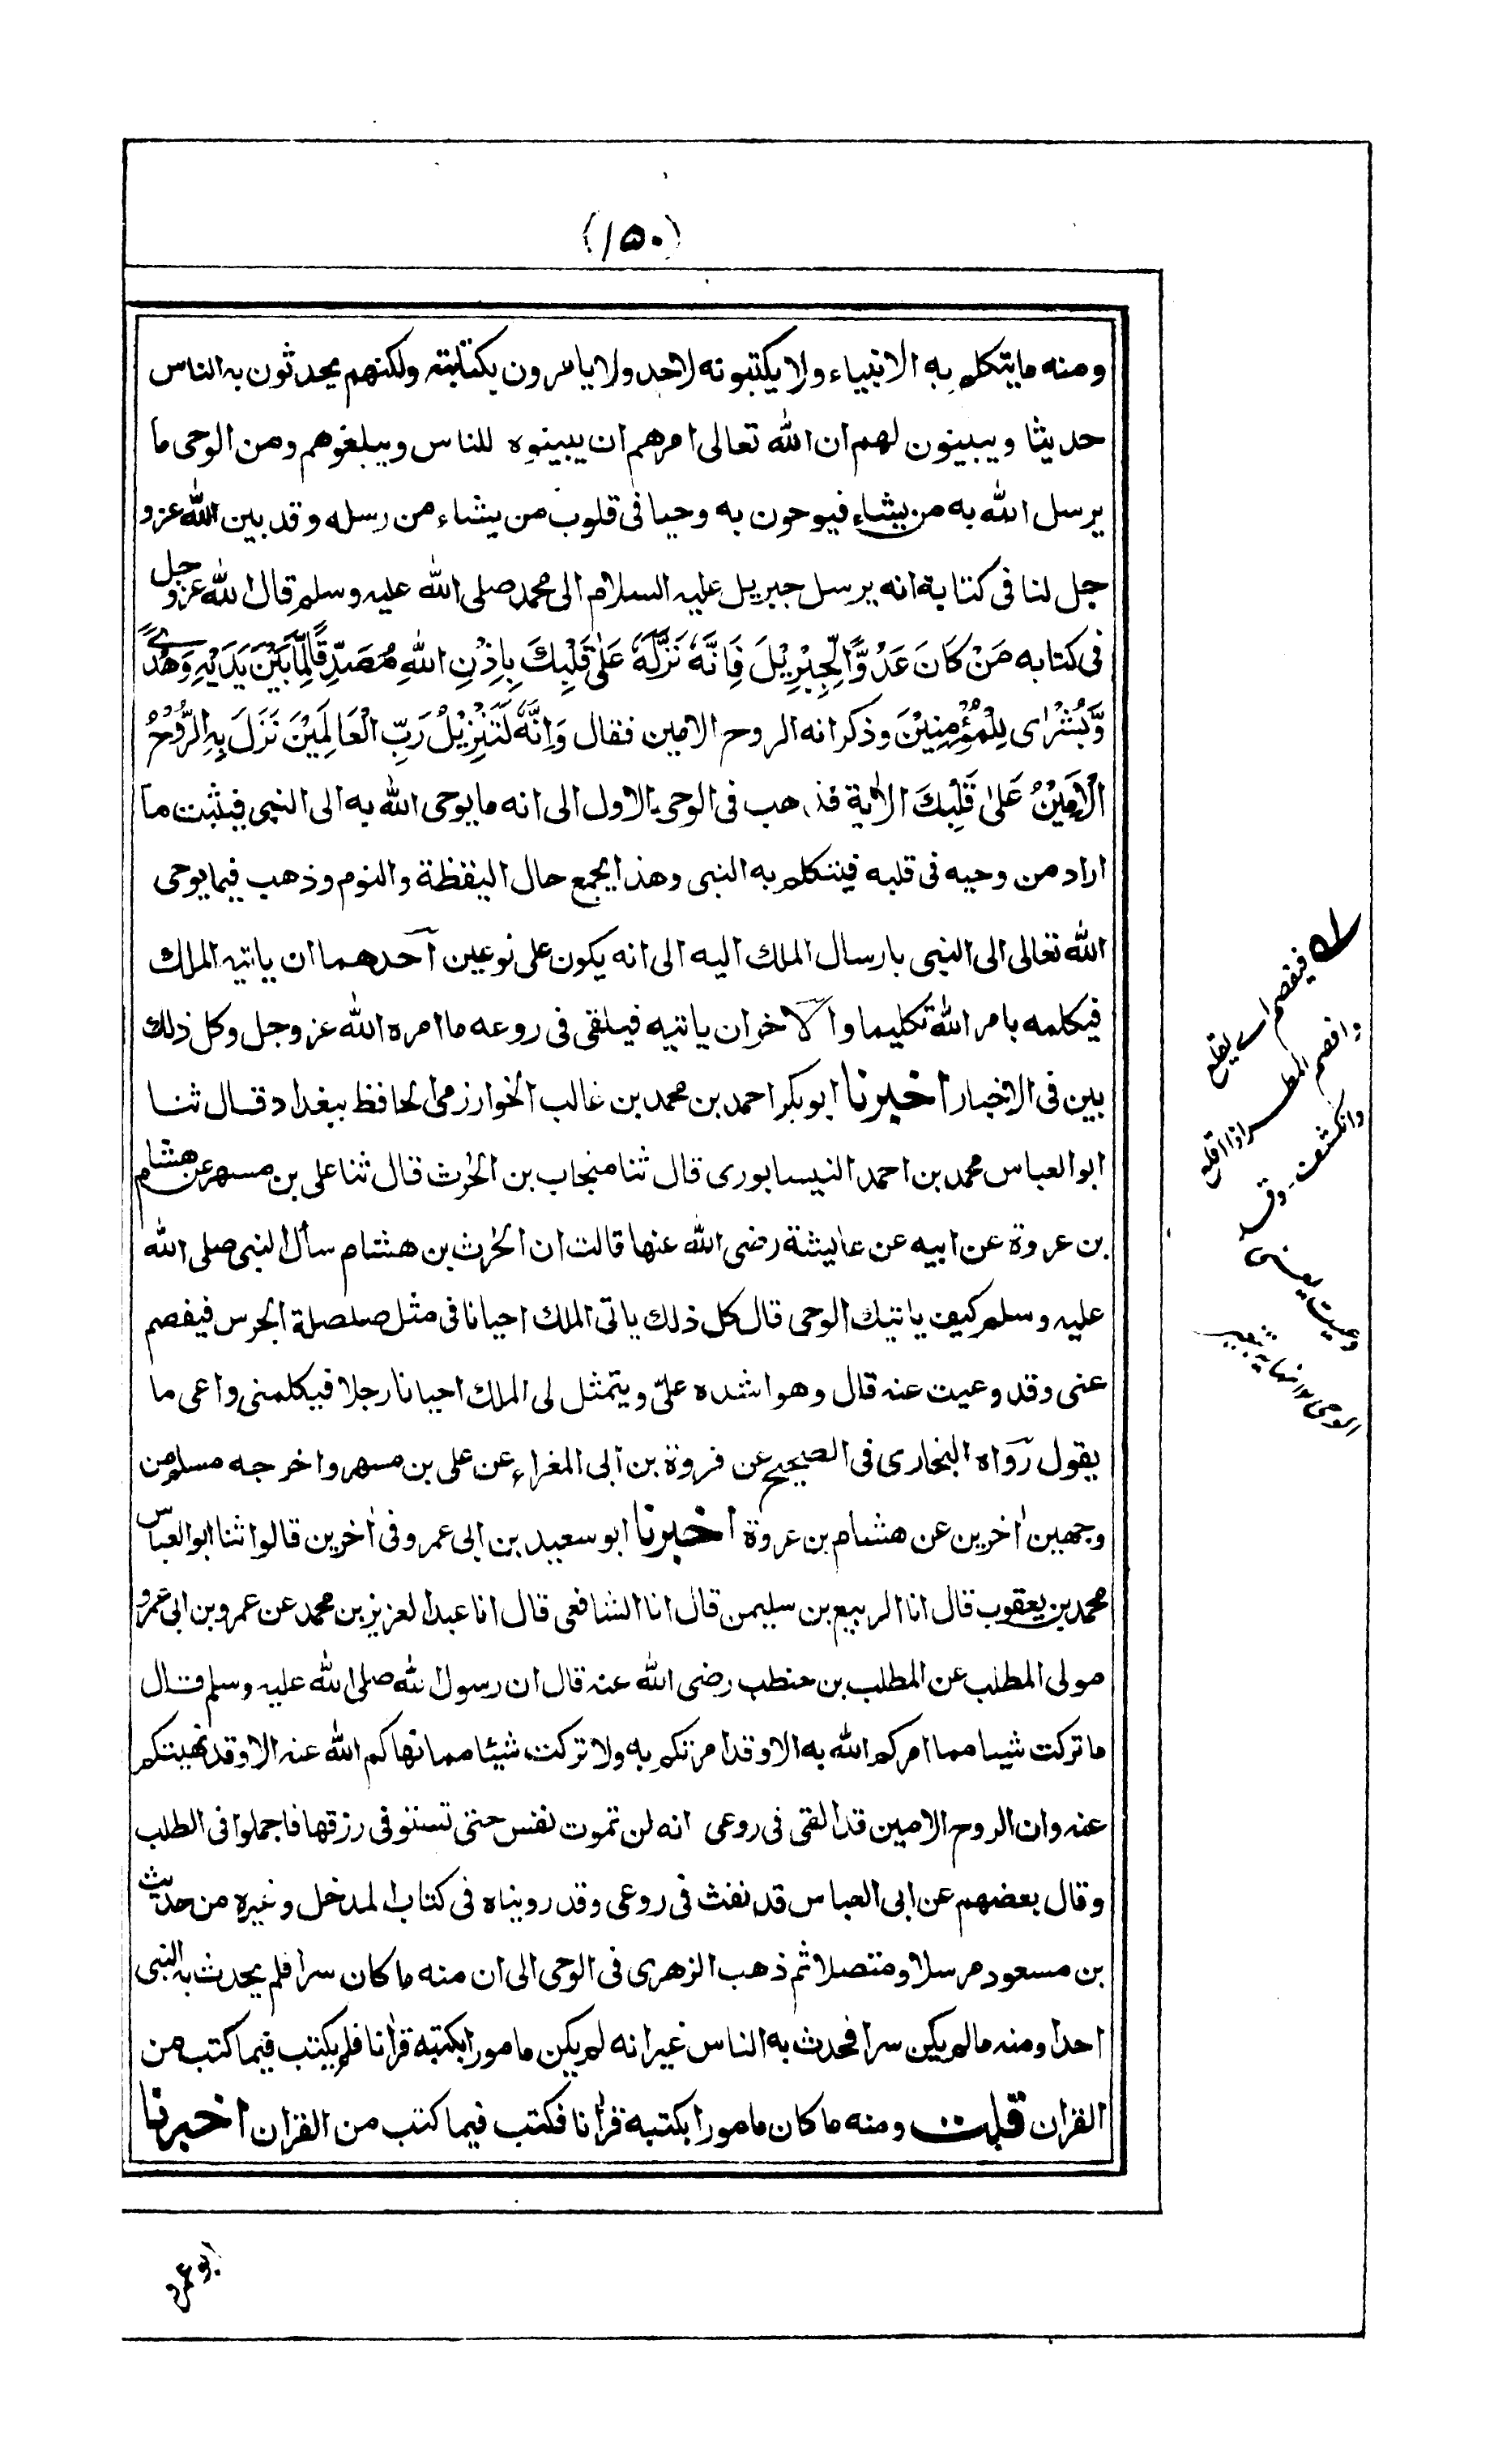 (١٥٠)
ومنه ما يتكلم به الانبياء ولا يكتبونه لاحد ولا يامرون بكتابته ولكنهم يحدثون به الناس
حديثا ويبينون لهم ان الله تعالى امرهم ان يبينوه للناس ويبلغوهم ومن الوحى ما
يرسل الله به من يشاء فيوحون به وحيا فى قلوب من يشاء من رسله وقد بين الله عز و
جل لنا فى كتابة انه يرسل جبريل عليه السلام الى محمد صلى الله عليه وسلم قال الله عز وجل
فى كتابه مَنْ كَانَ عَدُوًّا لِّجِبْرِيْلَ فَاِنَّهٗ نَزَّلَهٗ عَلٰى قَلْبِكَ بِاِذْنِ اللهِ مُصَدِّقًا لِّمَا بَيْنَ يَدَيْهِ وَهُدًى
وَّبُشْرٰى لِلْمُؤْمِنِيْنَ وذكر انه الروح الامين فقال وَاِنَّهٗ لَتَنْزِيْلُ رَبِّ الْعَالَمِيْنَ نَزَلَ بِهِ الرُّوْحُ
الْاَمِيْنُ عَلٰى قَلْبِكَ الاٰية فذهب فى الوحى الاول الى انه ما يوحى الله به الى النبى فيثبت ما
اراد من وحيه فى قلبه فيتكلم به النبى وهذا يجمع حال اليقظة والنوم وذهب فيما يوحى
الله تعالى الى النبى بارسال الملك اليه الى انه يكون على نوعين احدهما ان ياتيه الملك
فيكلمه بامر الله تكليما والاخر ان ياتيه فيلقى فى روعه ما امره الله عز وجل وكل ذلك
بين فى الاخبار اخبرنا ابو بكر احمد بن محمد بن غالب الخوارزمى الحافظ ببغداد قال ثنا
ابو العباس محمد بن احمد النيسابورى قال ثنا منجاب بن الحٰرث قال ثنا على بن مسهر عن هشام
بن عروة عن ابيه عن عايشة رضى الله عنها قالت ان الحٰرث بن هشام سأل النبى صلى الله
عليه وسلم كيف ياتيك الوحى قال كل ذلك ياتى الملك احيانا فى مثل صلصلة الجرس فيفصم
عنى وقد وعيت عنه قال وهو اشده علىّ ويتمثل لى الملك احيانا رجلا فيكلمنى واعى ما
يقول رواه البخارى فى الصحيح عن فروة بن ابى المغراء عن على بن مسهر واخرجه مسلم من
وجهين اٰخرين عن هشام بن عروة اخبرنا ابو سعيد بن ابى عمرو فى اٰخرين قالوا ثنا ابو العباس
محمد بن يعقوب قال انا الربيع بن سليمن قال انا الشافعى قال انا عبد العزيز بن محمد عن عمرو بن ابى عمرو
مولى المطلب عن المطلب بن حنطب رضى الله عنه قال ان رسول الله صلى الله عليه وسلم قال
ما تركت شيئا مما امركم الله به الا وقد امرتكم به ولا تركت شيئا مما نهاكم الله عنه الا وقد نهيتكم
عنه وان الروح الامين قد القى فى روعى انه لن تموت نفس حتى تستوفى رزقها فاجملوا فى الطلب
وقال بعضهم عن ابى العباس قد نفث فى روعى وقد رويناه فى كتاب المدخل وغيره من حديث
بن مسعود مرسلا ومتصلا ثم ذهب الزهرى فى الوحى الى ان منه ما كان سرا فلم يحدث به النبى
احدا ومنه ما لم يكن سرا فحدث به الناس غير انه لم يكن مامورا بكتبه قراٰنا فلم يكتب فيما كتب من
القران قلت ومنه ما كان مامورا بكتبه قراٰنا فكتب فيما كتب من القران اخبرنا
فيفصم اے يقلع
وافصم المطر اذا اقلع
وانكشف وقد
وعيت يعنى
الوحى
ابو عمرو